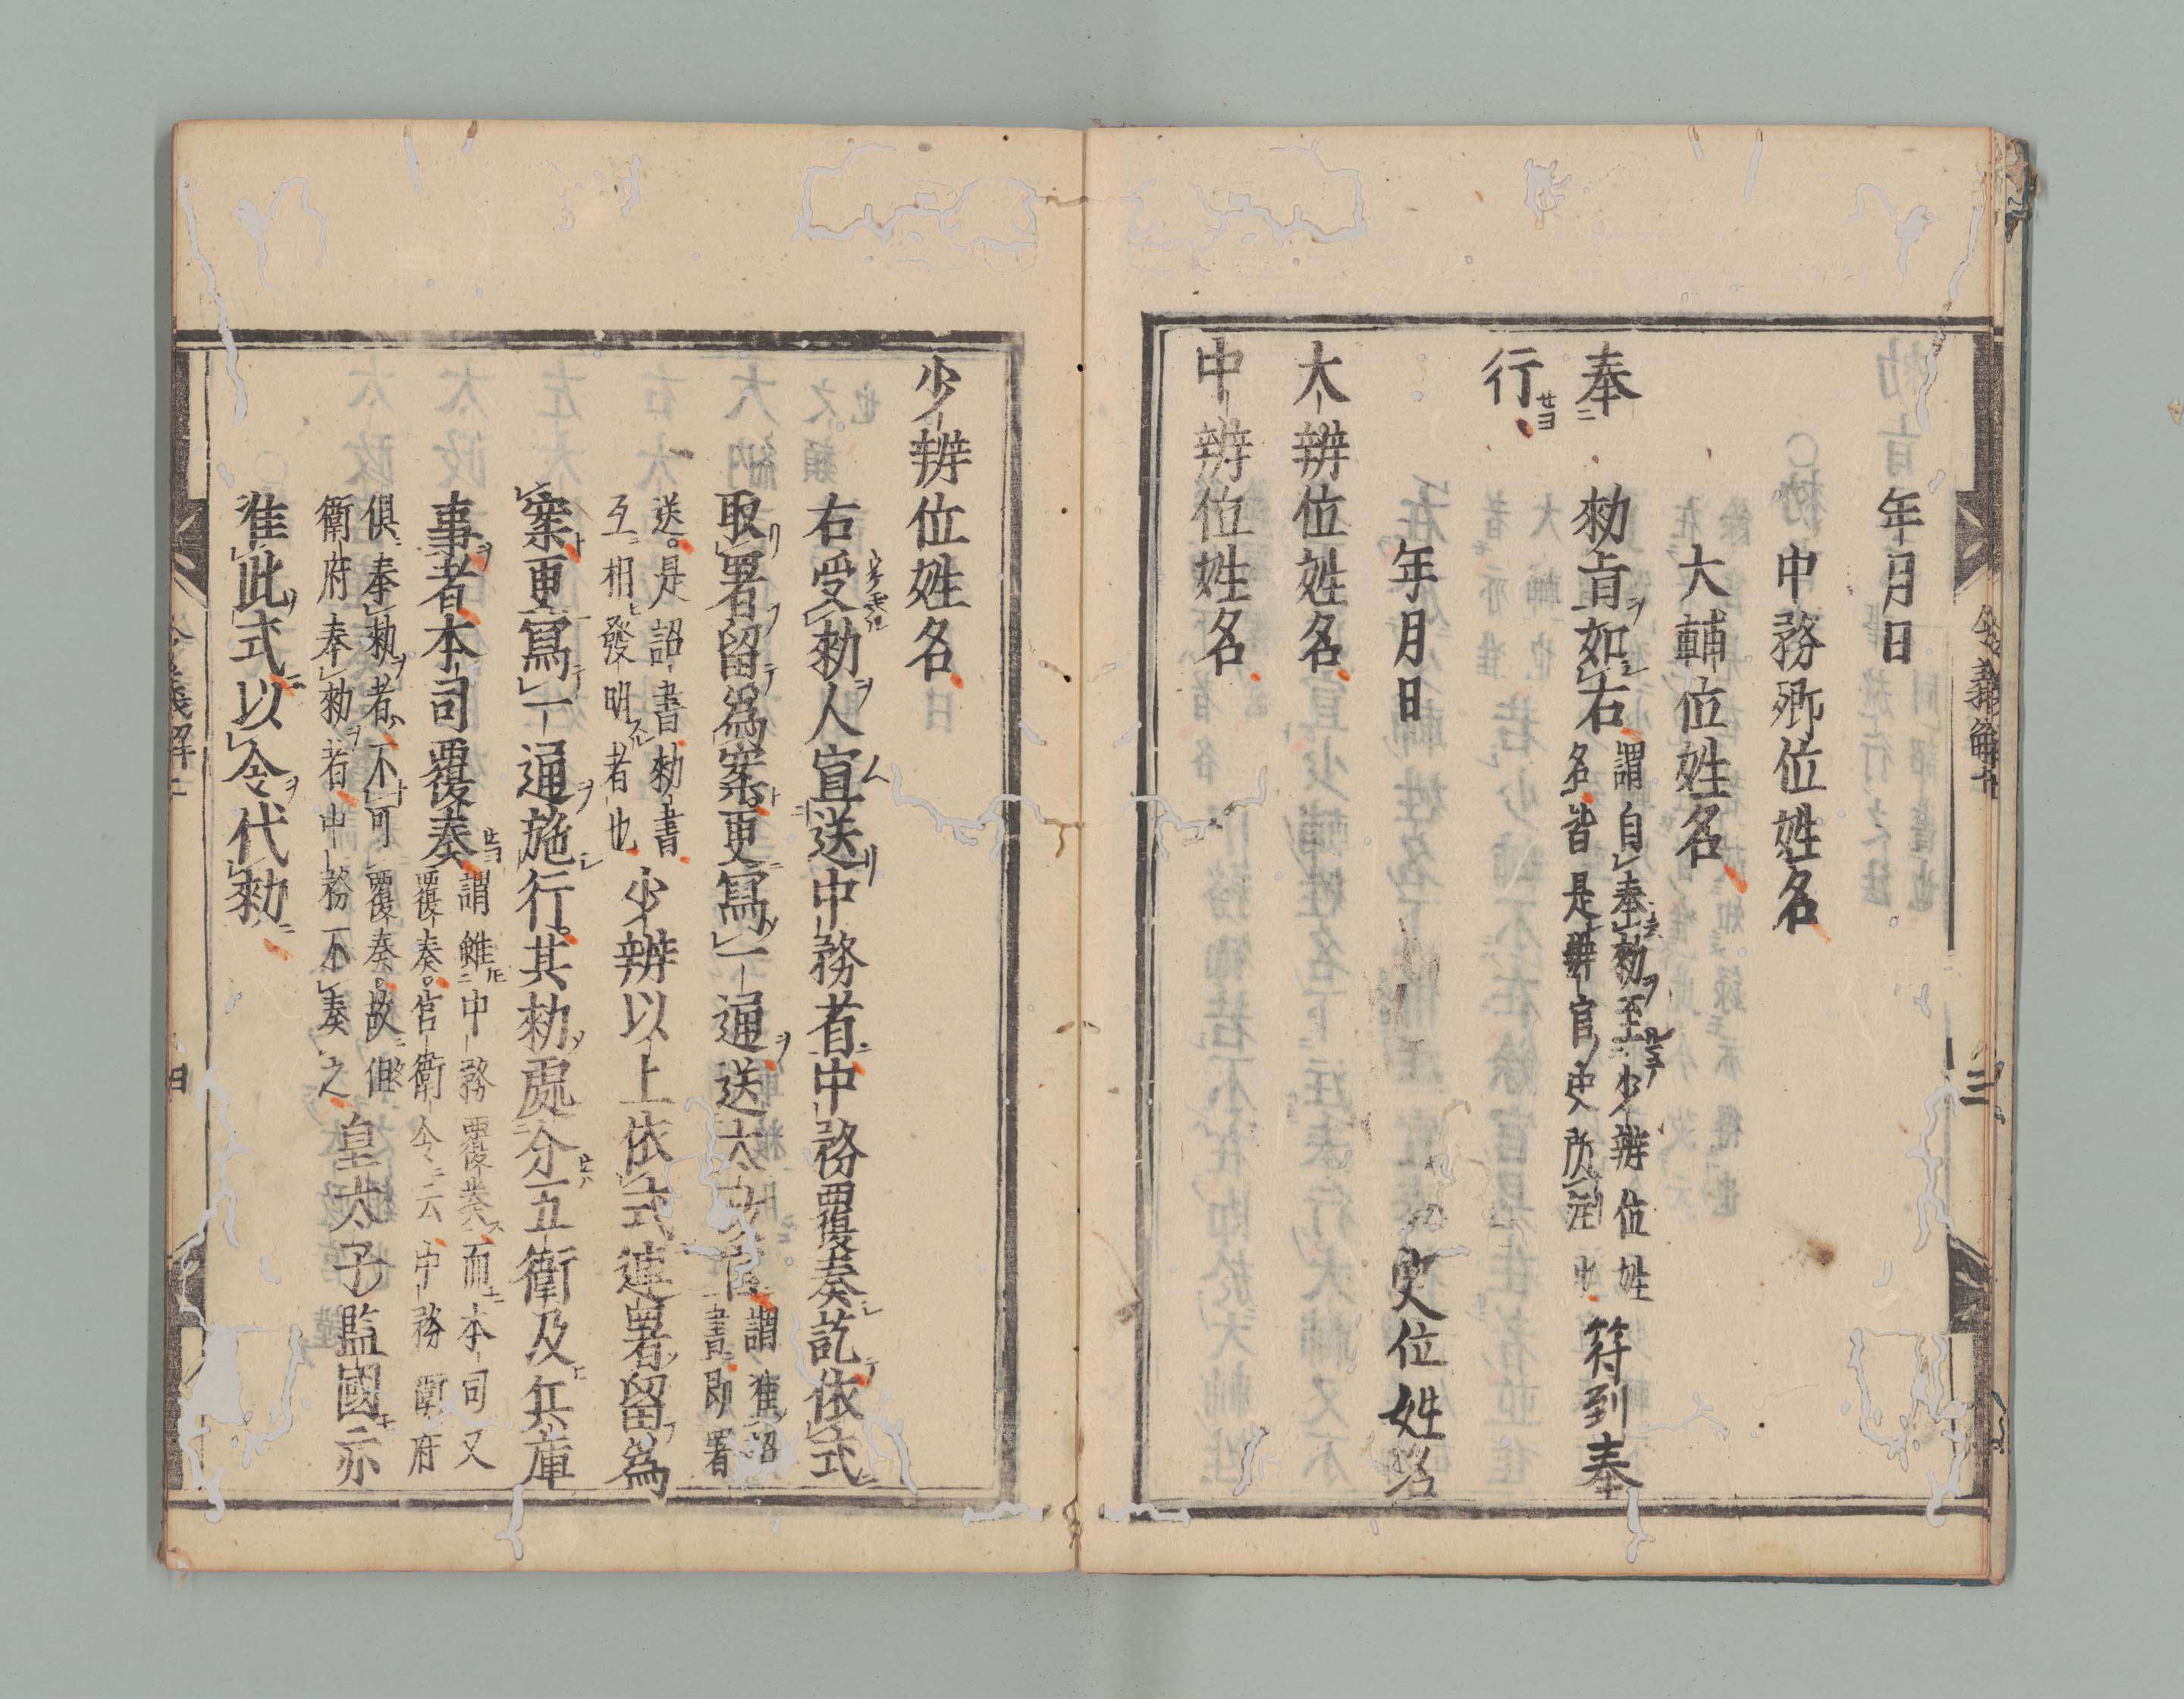 年月日
中務卿位姓名
大輔位姓名
奉
勑旨如右謂自奉勑至少辨位姓
名皆是辨官史所注也符到奉
行
年月日 史位姓名
大辨位姓名
中辨位姓名
少辨位姓名
右受勑人宣送中務者中務覆奏訖依式
取署留為案更寫一通送太政官謂准詔
書即署
送是詔書勑書
互相發明者也少辨以上依式連署留為
案更寫一通施行其勑處分五衛及兵庫
事者本司覆奏謂雖中務覆奏而本司又
覆奏宮衛令云中務衛府
俱奉勑者不可覆奏故但
衛府奉勑者中務不奏之皇太子監國亦
准此式以令代勑
令義解